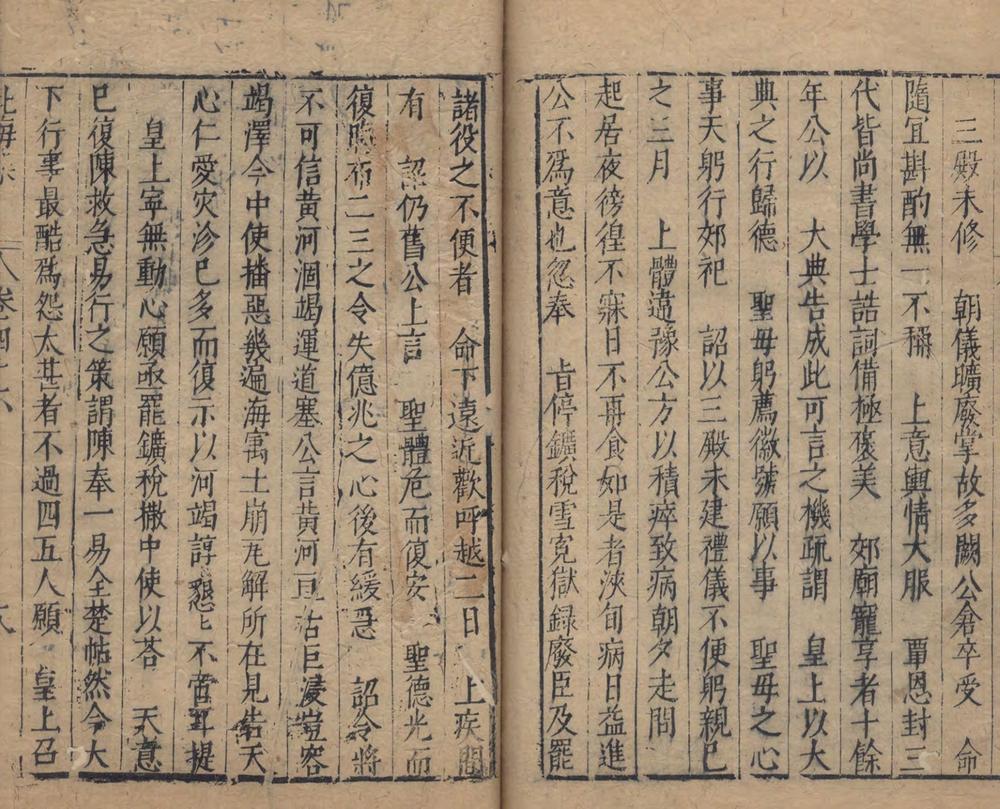 三殿未修　朝儀曠廢掌故多闕公倉卒受　命
隨宜斟酌無一不稱　上意輿情大服　覃恩封三
代皆尚書學士誥詞備極褒美　郊廟寵享者十餘
年公以　大典告成此可言之機疏謂　皇上以大
典之行歸德　聖母躬薦徽號願以事　聖母之心
事天躬行郊祀　詔以三殿未建禮儀不便躬親已
之三月　上體違豫公方以積瘁致病朝夕走問
起居夜徬徨不寐日不再食如是者浹旬病日益進
公不爲意也忽奉　旨停鑛稅雪寃獄録廢臣及罷
諸役之不便者　命下遠近歡呼越二日　上疾間
有　詔仍舊公上言　聖體危而復安　聖德光而
復晦布二三之令失億兆之心後有緩急　詔令將
不可信黄河涸竭運道塞公言黄河亘古巨浸豈容
竭澤今中使播惡幾遍海寓土崩瓦解所在見告天
心仁愛灾沴已多而復示以河竭諄懇不啻耳提
皇上寧無動心願亟罷鑛稅撤中使以荅　天意
已復陳救急易行之策謂陳奉一易全楚帖然今大
下行事最酷爲怨太甚者不過四五人願　皇上召
卷四十六